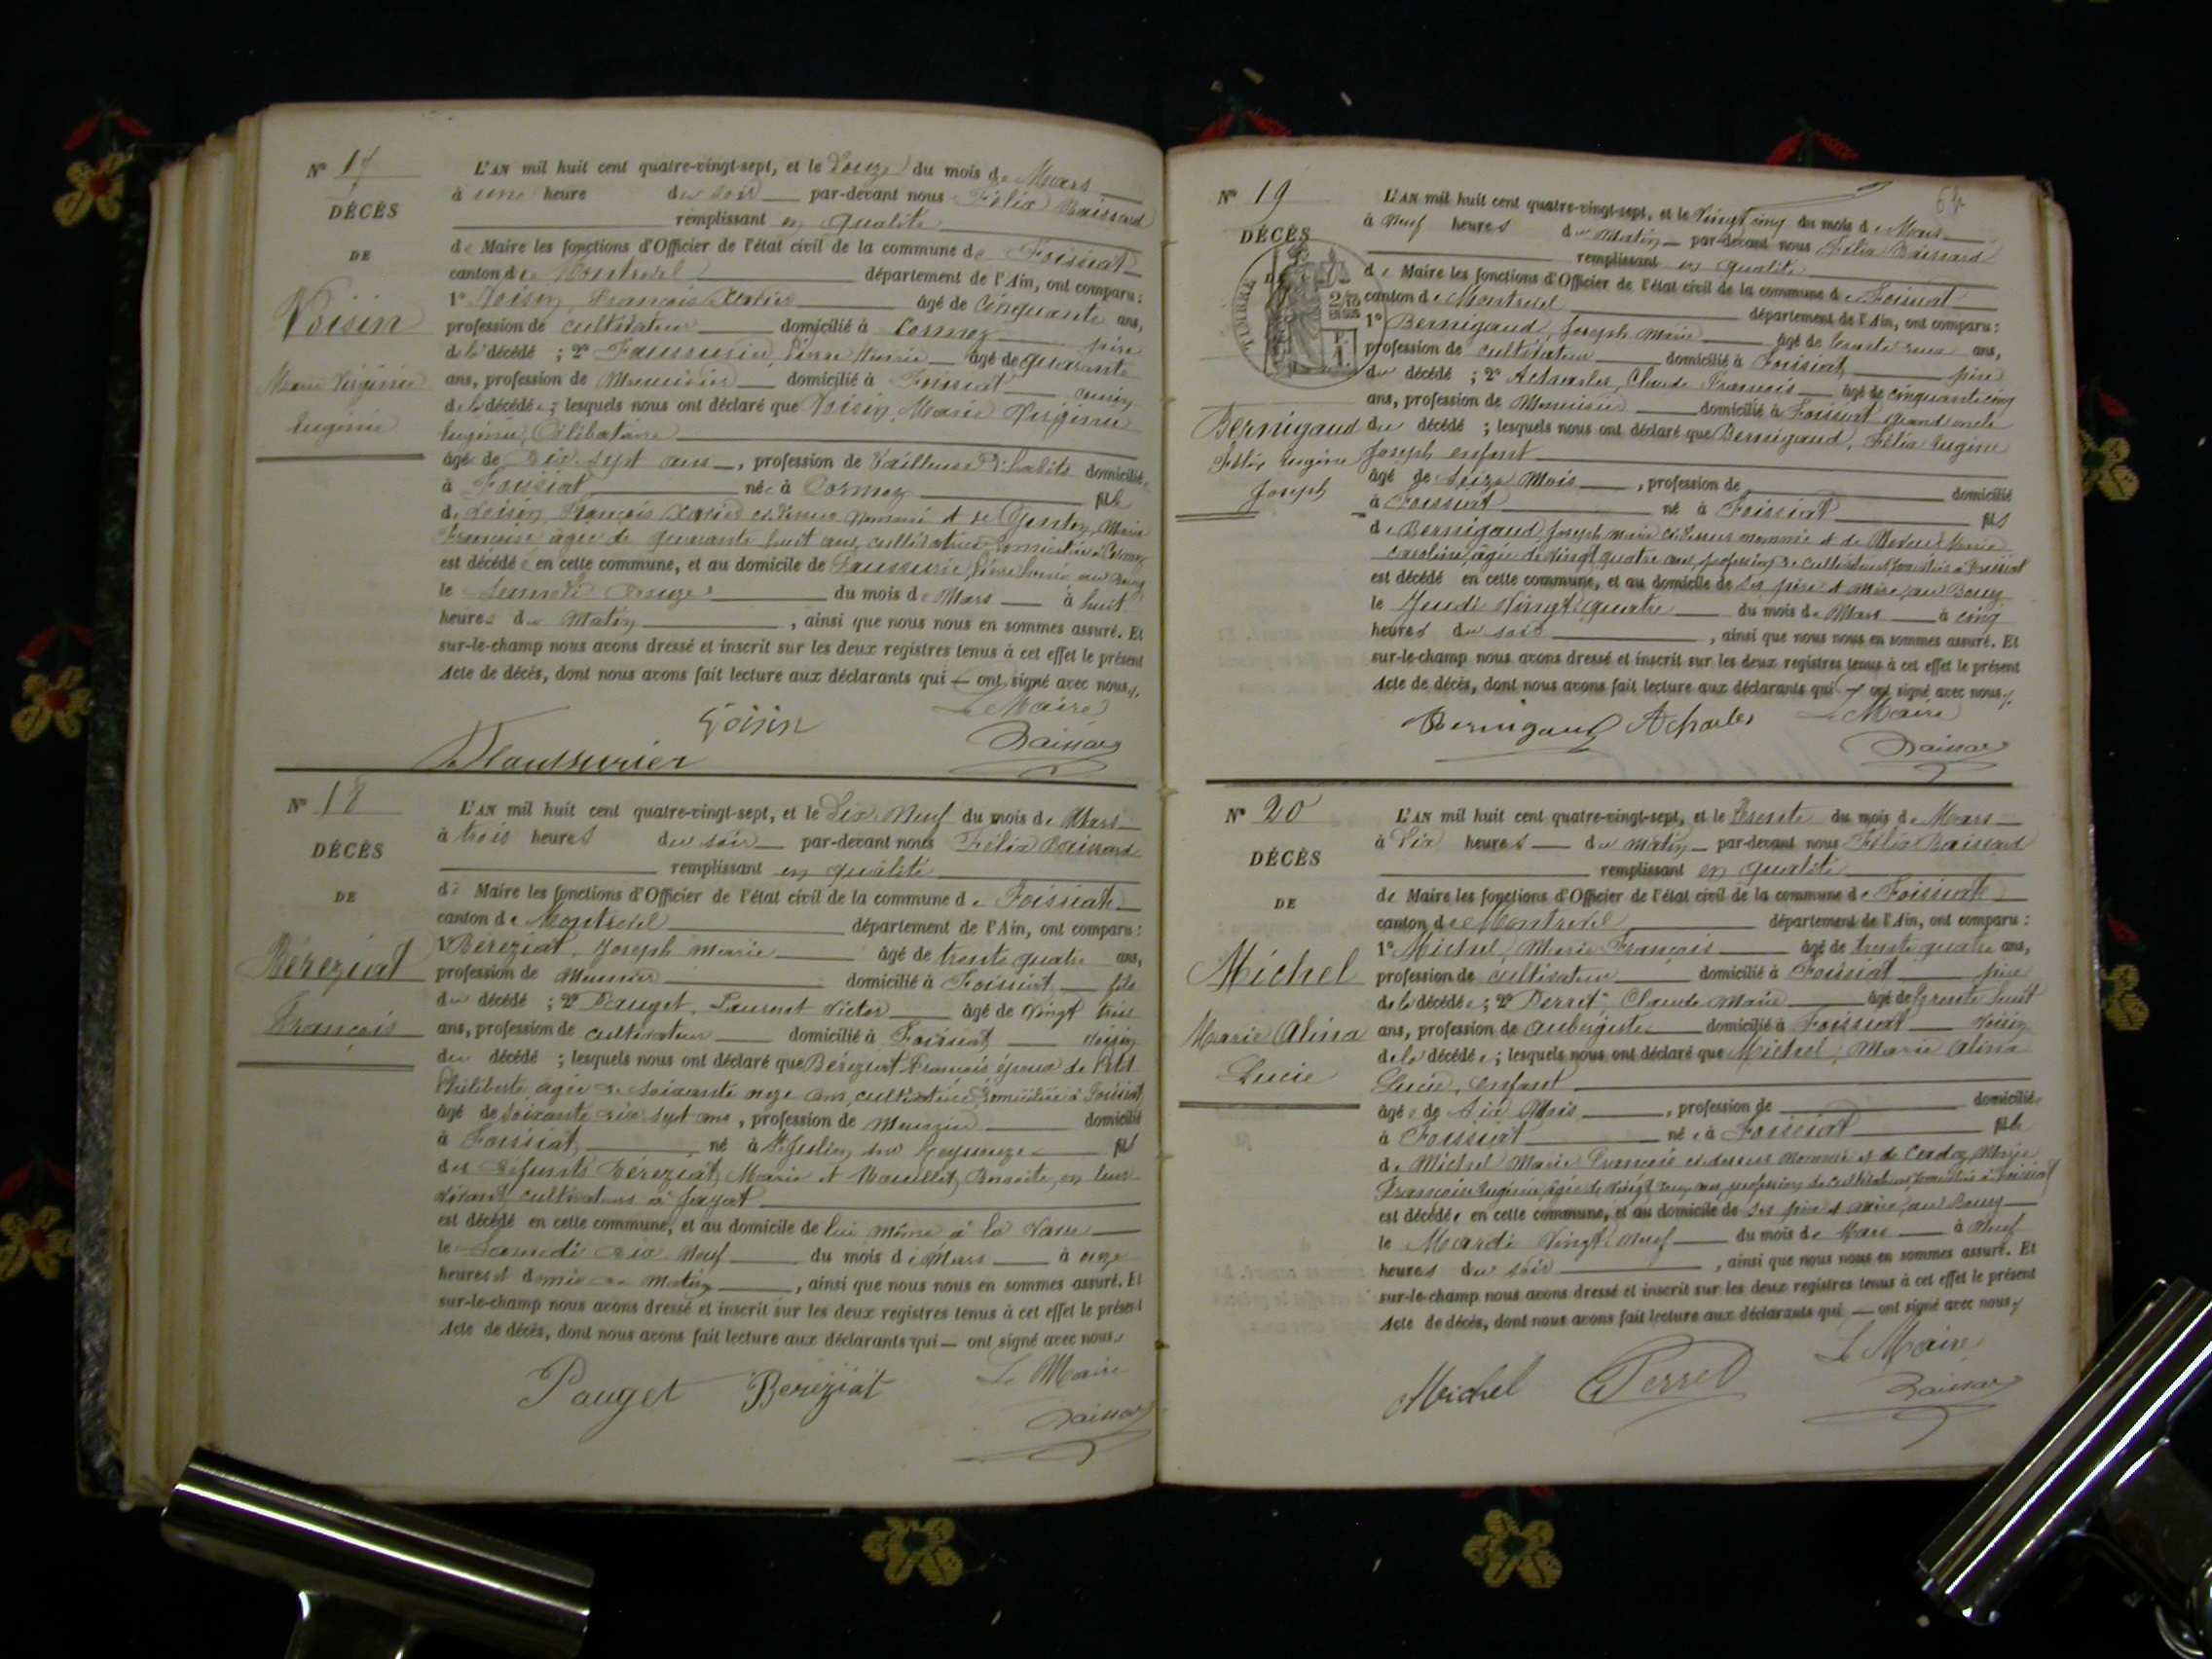 N° 17
DÉCÈS
DE
Voisin
Marie Virginie
Eugénie
L'AN mil huit cent quatre-vingt-sept, et le Douze du mois de Mars
à une heure du soir par-devant nous Félix Baissard
remplissant en qualité
de Maire les fonctions d'Officier de l'état civil de la commune de Foissiat
canton de Montrevel département de l'Ain, ont comparu :
1° Voisin, François Xavier âgé de Cinquante ans,
profession de cultivateur domicilié à Cormoz père
de la décédée ; 2° Faussurier, Pierre âgé de quarante
ans, profession de Menuisier domicilié à Foissiat cousin
de la décédée ; lesquels nous ont déclaré que Voisin, Marie Virginie
Eugénie, Célibataire
âgée de Dix-sept ans, profession de Tailleuse d'habits domiciliée
à Foissiat née à Cormoz fille
de Voisin, François Xavier ci-dessus nommé et de Marie
Françoise âgée de quarante huit ans, cultivatrice domiciliée à Cormoz
est décédée en cette commune, et au domicile de Faussurier, Pierre au Bourg
le Samedi Douze du mois de Mars à huit
heures du Matin, ainsi que nous nous en sommes assuré. Et
sur-le-champ nous avons dressé et inscrit sur les deux registres tenus à cet effet le présent
Acte de décès, dont nous avons fait lecture aux déclarants qui — ont signé avec nous.
Le Maire
Voisin
Faussurier Baissard
N° 18
DÉCÈS
DE
Béréziat
François
L'AN mil huit cent quatre-vingt-sept, et le Dix-Neuf du mois de Mars
à trois heures du soir par-devant nous Félix Baissard
remplissant en qualité
de Maire les fonctions d'Officier de l'état civil de la commune de Foissiat
canton de Montrevel département de l'Ain, ont comparu :
1° Béréziat, Joseph Marie âgé de trente quatre ans,
profession de Meunier domicilié à Foissiat fils
du décédé ; 2° Pauget, Laurent Victor âgé de Vingt trois
ans, profession de cultivateur domicilié à Foissiat voisin
du décédé ; lesquels nous ont déclaré que Béréziat François époux de
Philiberte, âgée de soixante onze ans, cultivatrice, domiciliée à Foissiat
âgé de soixante dix sept ans, profession de Meunier domicilié
à Foissiat né à St Julien sur Reyssouze fils
des défunts Béréziat, Marie et Benoite, en leur
vivant cultivateurs à Jayat
est décédé en cette commune, et au domicile de lui même à la
le Samedi dix Neuf du mois de Mars à onze
heures et demie du Matin, ainsi que nous nous en sommes assuré. Et
sur-le-champ nous avons dressé et inscrit sur les deux registres tenus à cet effet le présent
Acte de décès, dont nous avons fait lecture aux déclarants qui — ont signé avec nous.
Le Maire
Pauget Béréziat
Baissard
N° 19
DÉCÈS
DE
TIMBRE
Bernigaud
Félix Eugène
Joseph
L'AN mil huit cent quatre-vingt-sept, et le Vingt cinq du mois de Mars
à Neuf heures du Matin par-devant nous Félix Baissard
remplissant en qualité
de Maire les fonctions d'Officier de l'état civil de la commune de Foissiat
canton de Montrevel département de l'Ain, ont comparu :
1° Bernigaud, Joseph Marie âgé de trente ans,
profession de cultivateur domicilié à Foissiat père
du décédé ; 2° Acharles, Claude François âgé de cinquante cinq
ans, profession de Menuisier domicilié à Foissiat grand oncle
du décédé ; lesquels nous ont déclaré que Bernigaud, Félix Eugène
Joseph enfant
âgé de Seize Mois, profession de domicilié
à Foissiat né à Foissiat fils
de Bernigaud, Joseph Marie ci-dessus nommé et de Marie
Caroline, âgée de vingt quatre ans, profession de cultivatrice, domiciliée à Foissiat
est décédé en cette commune, et au domicile de ses père et mère, au Bourg
le Jeudi Vingt-quatre du mois de Mars à cinq
heures du soir, ainsi que nous nous en sommes assuré. Et
sur-le-champ nous avons dressé et inscrit sur les deux registres tenus à cet effet le présent
Acte de décès, dont nous avons fait lecture aux déclarants qui — ont signé avec nous.
Bernigaud Acharles Le Maire
Baissard
N° 20
DÉCÈS
DE
Michel
Marie Alina
Lucie
L'AN mil huit cent quatre-vingt-sept, et le Trente du mois de Mars
à Dix heures du Matin par-devant nous Félix Baissard
remplissant en qualité
de Maire les fonctions d'Officier de l'état civil de la commune de Foissiat
canton de Montrevel département de l'Ain, ont comparu :
1° Michel, Marie François âgé de trente quatre ans,
profession de cultivateur domicilié à Foissiat père
de la décédée ; 2° Perret Claude Marie âgé de trente huit
ans, profession de aubergiste domicilié à Foissiat Voisin
de la décédée ; lesquels nous ont déclaré que Michel, Marie Alina
Lucie, enfant
âgée de Six Mois, profession de domiciliée
à Foissiat née à Foissiat fille
de Michel Marie François ci-dessus nommé et de Marie
Françoise Eugénie, âgée de vingt ans, profession de cultivatrice, domiciliée à Foissiat
est décédée en cette commune, et au domicile de ses père et mère, au Bourg
le Mardi Vingt-Neuf du mois de Mars à Neuf
heures du soir, ainsi que nous nous en sommes assuré. Et
sur-le-champ nous avons dressé et inscrit sur les deux registres tenus à cet effet le présent
Acte de décès, dont nous avons fait lecture aux déclarants qui — ont signé avec nous.
Le Maire
Michel Perret
Baissard